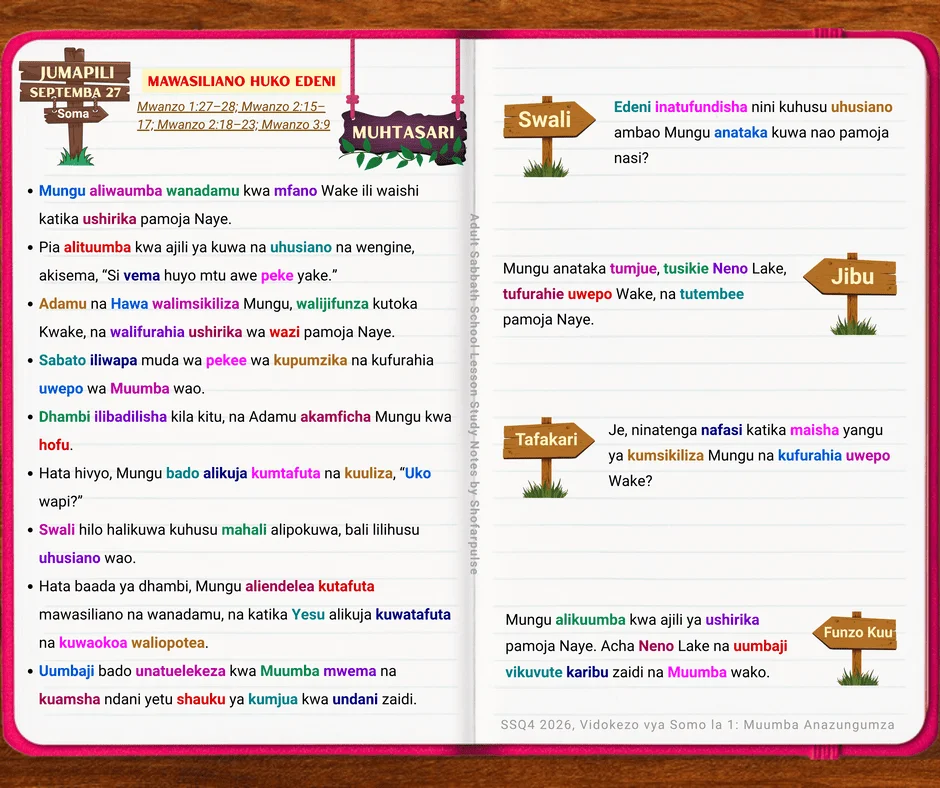 JUMAPILI
SEPTEMBA 27
Soma
MAWASILIANO HUKO EDENI
Mwanzo 1:27–28; Mwanzo 2:15–
17; Mwanzo 2:18–23; Mwanzo 3:9
MUHTASARI
• Mungu aliwaumba wanadamu kwa mfano Wake ili waishi
katika ushirika pamoja Naye.
• Pia alituumba kwa ajili ya kuwa na uhusiano na wengine,
akisema, “Si vema huyo mtu awe peke yake.”
• Adamu na Hawa walimsikiliza Mungu, walijifunza kutoka
Kwake, na walifurahia ushirika wa wazi pamoja Naye.
• Sabato iliwapa muda wa pekee wa kupumzika na kufurahia
uwepo wa Muumba wao.
• Dhambi ilibadilisha kila kitu, na Adamu akamficha Mungu kwa
hofu.
• Hata hivyo, Mungu bado alikuja kumtafuta na kuuliza, “Uko
wapi?”
• Swali hilo halikuwa kuhusu mahali alipokuwa, bali lilihusu
uhusiano wao.
• Hata baada ya dhambi, Mungu aliendelea kutafuta
mawasiliano na wanadamu, na katika Yesu alikuja kuwatafuta
na kuwaokoa waliopotea.
• Uumbaji bado unatuelekeza kwa Muumba mwema na
kuamsha ndani yetu shauku ya kumjua kwa undani zaidi.
Adult Sabbath School Lesson Study Notes by Shofarpulse
Swali
Edeni inatufundisha nini kuhusu uhusiano
ambao Mungu anataka kuwa nao pamoja
nasi?
Mungu anataka tumjue, tusikie Neno Lake,
tufurahie uwepo Wake, na tutembee
pamoja Naye.
Jibu
Tafakari
Je, ninatenga nafasi katika maisha yangu
ya kumsikiliza Mungu na kufurahia uwepo
Wake?
Mungu alikuumba kwa ajili ya ushirika
pamoja Naye. Acha Neno Lake na uumbaji
vikuvute karibu zaidi na Muumba wako.
Funzo Kuu
SSQ4 2026, Vidokezo vya Somo la 1: Muumba Anazungumza